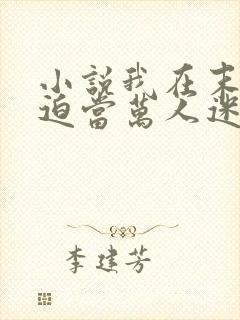 小説我在末
迫當萬人迷
李建芳